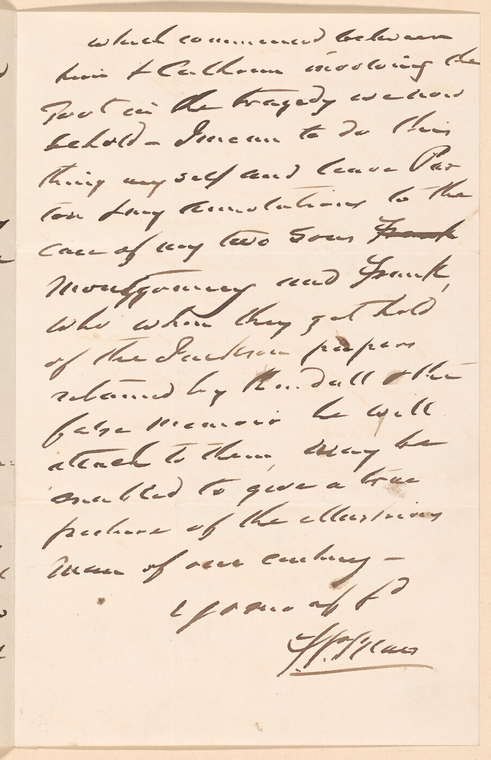 which commenced between
him & Calhoun involving the
Root in the tragedy we now
behold – I mean to do this
thing my self and leave Par
ton & my annotations to the
care of my two sons Frank
Montgomery and Frank,
who when they get hold
of the Jackson papers
retained by Kendall & the
false memoir he will
attach to them, may be
enabled to give a true
picture of the illustrious
man of our century –
Yours aff fd
F P Blair